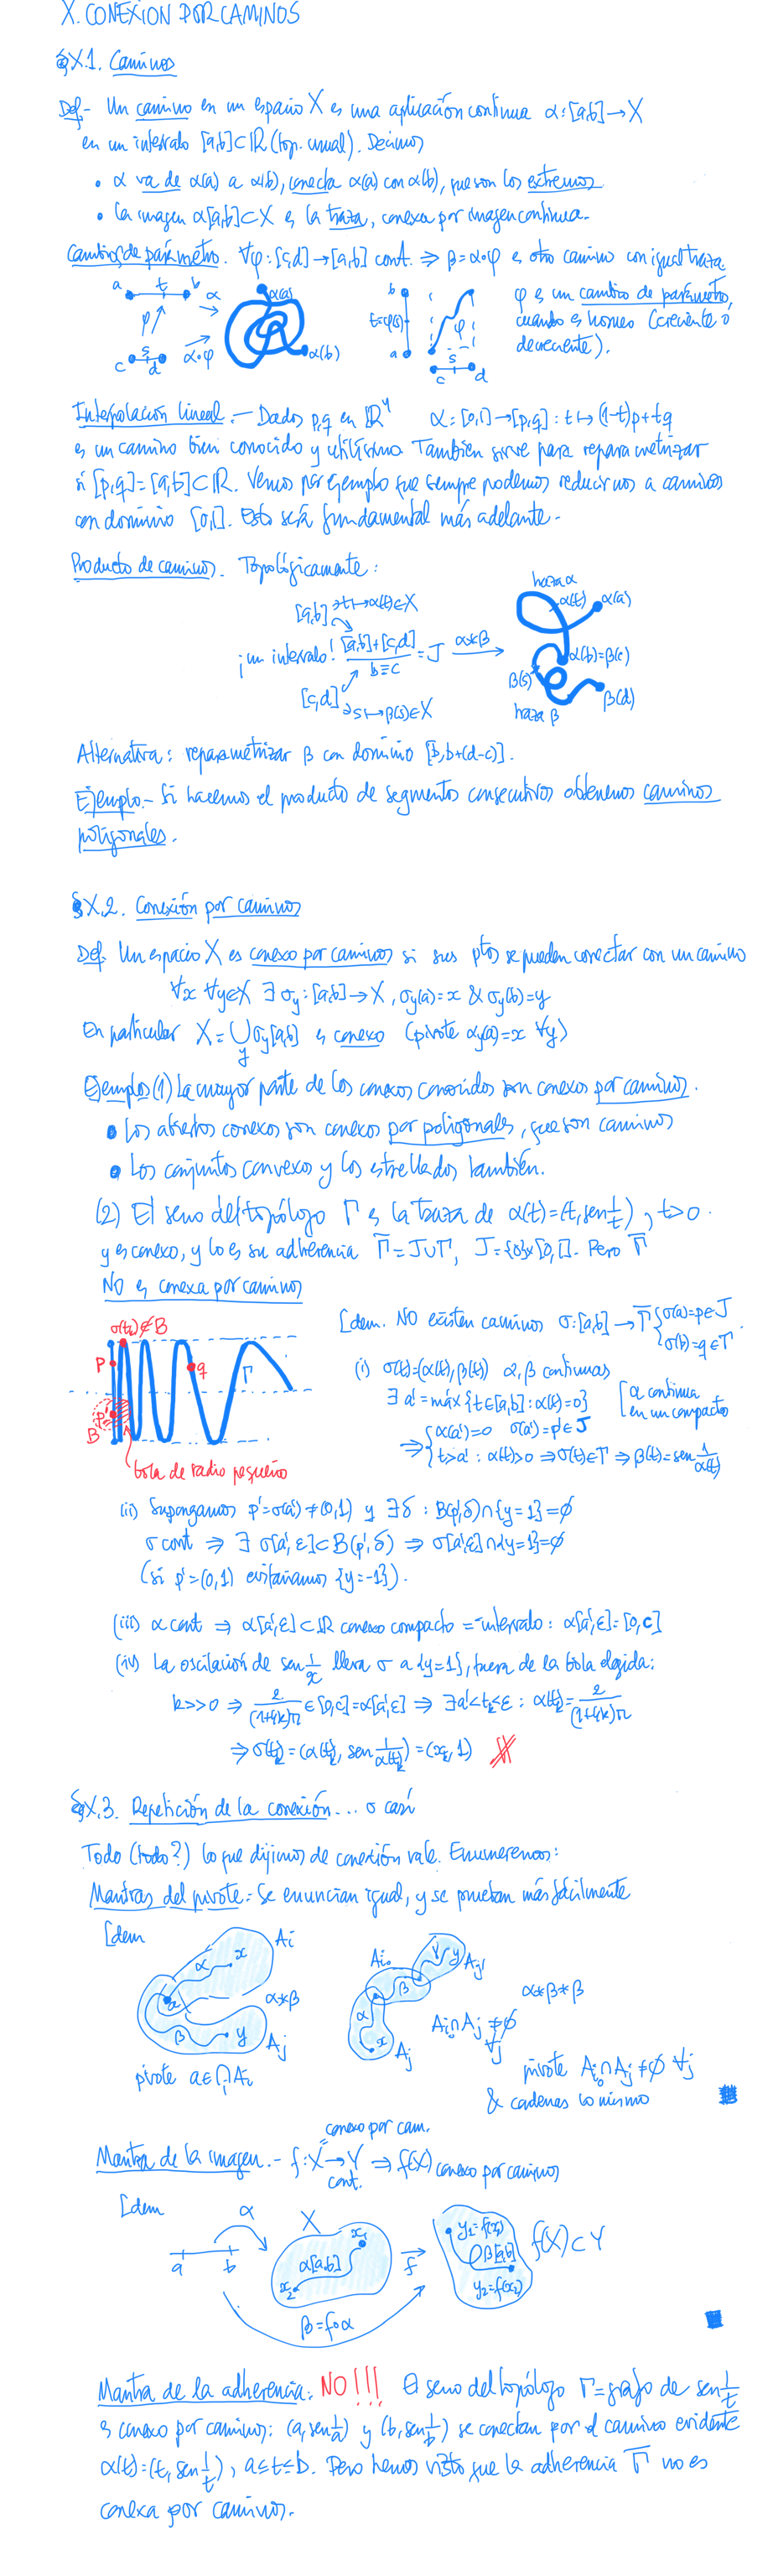 X. CONEXIÓN POR CAMINOS
§X.1. Caminos
Def.- Un camino en un espacio X es una aplicación continua α:[a,b]→X
en un intervalo [a,b]⊂ℝ (top. usual). Decimos
• α va de α(a) a α(b), conecta α(a) con α(b), que son los extremos
• La imagen α[a,b]⊂X es la traza, conexa por imagen continua.
Cambios de parámetro. ∀φ:[c,d]→[a,b] cont. ⇒ β=α∘φ es otro camino con igual traza.
a t b α α(a)
φ α∘φ α(b)
c s d
b t=φ(s) a φ c s d
φ es un cambio de parámetro,
cuando es homeo (creciente ó
decreciente).
Interpolación lineal.- Dados p,q en ℝⁿ α=[0,1]→[p,q]: t↦(1-t)p+tq
es un camino bien conocido y utilísimo. También sirve para reparametrizar
si [p,q]=[a,b]⊂ℝ. Vemos por ejemplo que siempre podemos reducirnos a caminos
con dominio [0,1]. Esto será fundamental más adelante.
Producto de caminos. Topológicamente:
[a,b]∋t↦α(t)∈X
¡un intervalo! [a,b]+[c,d] / b≡c = J α*β →
[c,d]∋s↦β(s)∈X
traza α α(t) α(a)
α(b)=β(c)
β(s) β(d)
traza β
Alternativa: reparametrizar β con dominio [b,b+(d-c)].
Ejemplo.- Si hacemos el producto de segmentos consecutivos obtenemos caminos
poligonales.
§X.2. Conexión por caminos
Def. Un espacio X es conexo por caminos si sus ptos se pueden conectar con un camino
∀x ∀y∈X ∃ σy:[a,b]→X, σy(a)=x & σy(b)=y
En particular X=⋃y σy[a,b] es conexo (pivote αy(a)=x ∀y)
Ejemplos (1) La mayor parte de los conexos conocidos son conexos por caminos.
• Los abiertos conexos son conexos por poligonales, que son caminos
• Los conjuntos convexos y los estrellados también.
(2) El seno del topólogo Γ es la traza de α(t)=(t, sen 1/t), t>0.
y es conexo, y lo es su adherencia Γ̄=J∪Γ, J={0}×[0,1]. Pero Γ̄
NO es conexa por caminos
σ(tₖ)∉B
P q Γ
p' B
bola de radio pequeño
[dem. NO existen caminos σ:[a,b]→Γ̄ {σ(a)=p∈J
σ(b)=q∈Γ.
(i) σ(t)=(α(t),β(t)) α,β continuas
∃ a'=máx{t∈[a,b]: α(t)=0} [α continua
en un compacto
⇒ {α(a')=0 σ(a')=p'∈J
t>a': α(t)>0 ⇒ σ(t)∈Γ ⇒ β(t)=sen 1/α(t)
(ii) Supongamos p'=σ(a')≠(0,1) y ∃δ: B(p',δ)∩{y=1}=∅
σ cont ⇒ ∃ σ[a',ε]⊂B(p',δ) ⇒ σ[a',ε]∩{y=1}=∅
(si p'=(0,1) evitaríamos {y=-1}).
(iii) α cont ⇒ α[a',ε]⊂ℝ conexo compacto = intervalo: α[a',ε]=[0,c]
(iv) La oscilación de sen 1/x lleva σ a {y=1}, fuera de la bola elegida:
k>>0 ⇒ 2/((1+4k)π) ∈[0,c]=α[a',ε] ⇒ ∃a'<tₖ≤ε: α(tₖ)=2/((1+4k)π)
⇒ σ(tₖ)=(α(tₖ), sen 1/α(tₖ))=(xₖ,1)
§X.3. Repetición de la conexión... o casi
Todo (todo?) lo que dijimos de conexión vale. Enumeremos:
Mantras del pivote.- Se enuncian igual, y se prueban más fácilmente
[dem
Ai α x a α*β β y Aj
pivote a∈⋂i Ai
Ai₀ γ y Aj' β α x Aj
Ai₀∩Aj≠∅ ∀j
α*β*β
pivote Ai₀∩Aj≠∅ ∀j
& cadenas lo mismo
Mantra de la imagen.- f: X→Y ⇒ f(X) conexo por caminos
conexo por cam.
cont.
[dem
α X x₁ α[a,b] x₂
a b
f
y₁=f(x₁) β[a,b] y₂=f(x₂) f(X)⊂Y
β=f∘α
Mantra de la adherencia: NO!!! El seno del topólogo Γ=grafo de sen 1/t
es conexo por caminos: (a, sen 1/a) y (b, sen 1/b) se conectan por el camino evidente
α(t)=(t, sen 1/t), a≤t≤b. Pero hemos visto que la adherencia Γ̄ no es
conexa por caminos.